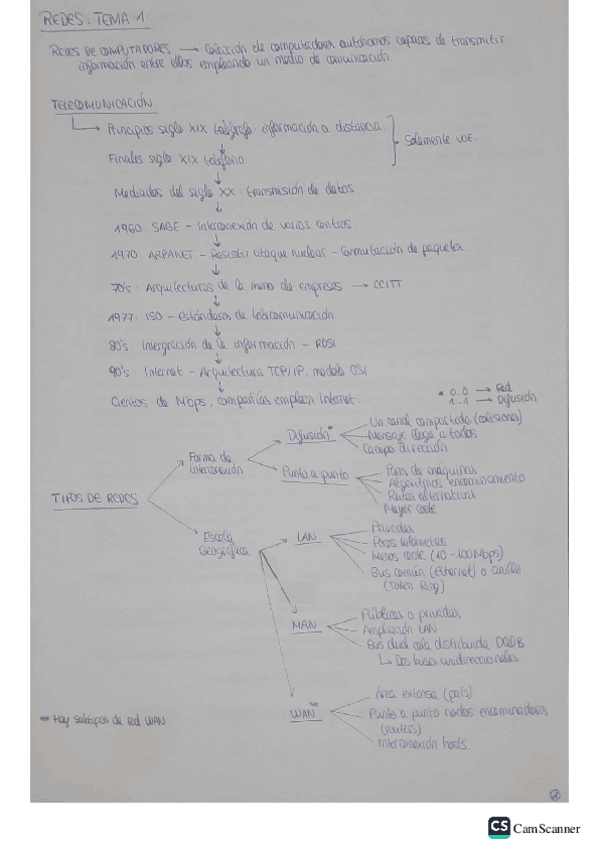 REDES: TEMA 1
REDES DE COMPUTADORES → Colección de computadores autónomos capaces de transmitir
información entre ellos empleando un medio de comunicación.
TELECOMUNICACIÓN
Principios siglo XIX telégrafo: información a distancia
Solamente voz.
Finales siglo XIX teléfono
Mediados del siglo XX: transmisión de datos
1960 SAGE - Interconexión de varios centros
1970 ARPANET - Resistir ataque nuclear - Conmutación de paquetes.
70's: Arquitecturas de la mano de empresas → CCITT
1977: ISO - Estándares de telecomunicación
80's: Intergración de la información - RDSI
90's: Internet - Arquitectura TCP/IP, modelo OSI
Cientos de Mbps, compañías emplean Internet.
* 0..0 → Red
1..1 → Difusión
TIPOS DE REDES
Forma de
interconexión
Difusión*
Un canal compartido (colisiones)
Mensaje llega a todos
Campo dirección
Punto a punto
Pares de máquinas
Algoritmos encaminamiento
Rutas alternativas
Mayor coste
Escala
Geográfica
LAN
Privadas
Pocos kilómetros
Menos coste (10 - 100Mbps)
Bus común (Ethernet) o anillo
(Token Ring)
MAN
Públicas o privadas
Ampliación LAN
Bus dual cola distribuida DQDB
↳ Dos buses unidireccionales
WAN
Área extensa (país)
Punto a punto nodos encaminadores
(routers)
Interconexión hosts
Hay subtipos de red WAN
CS CamScanner